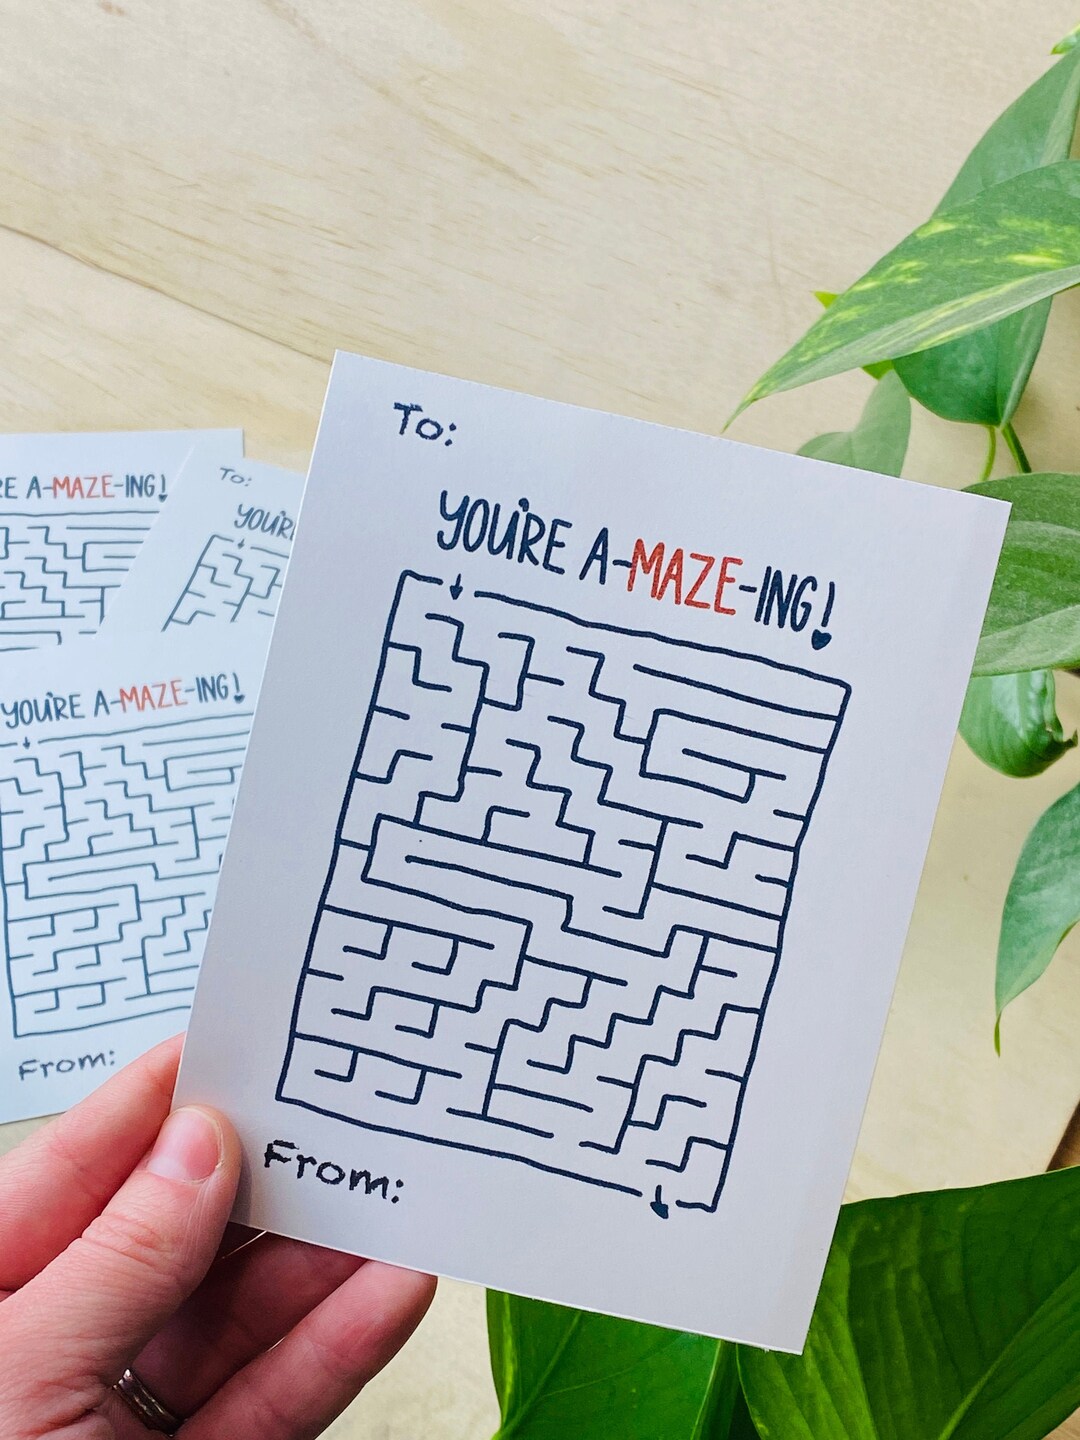 To:
YOU'RE A-MAZE-ING!
From:
RE A-MAZE-ING!
To:
YOU'R
YOU'RE A-MAZE-ING!
From: